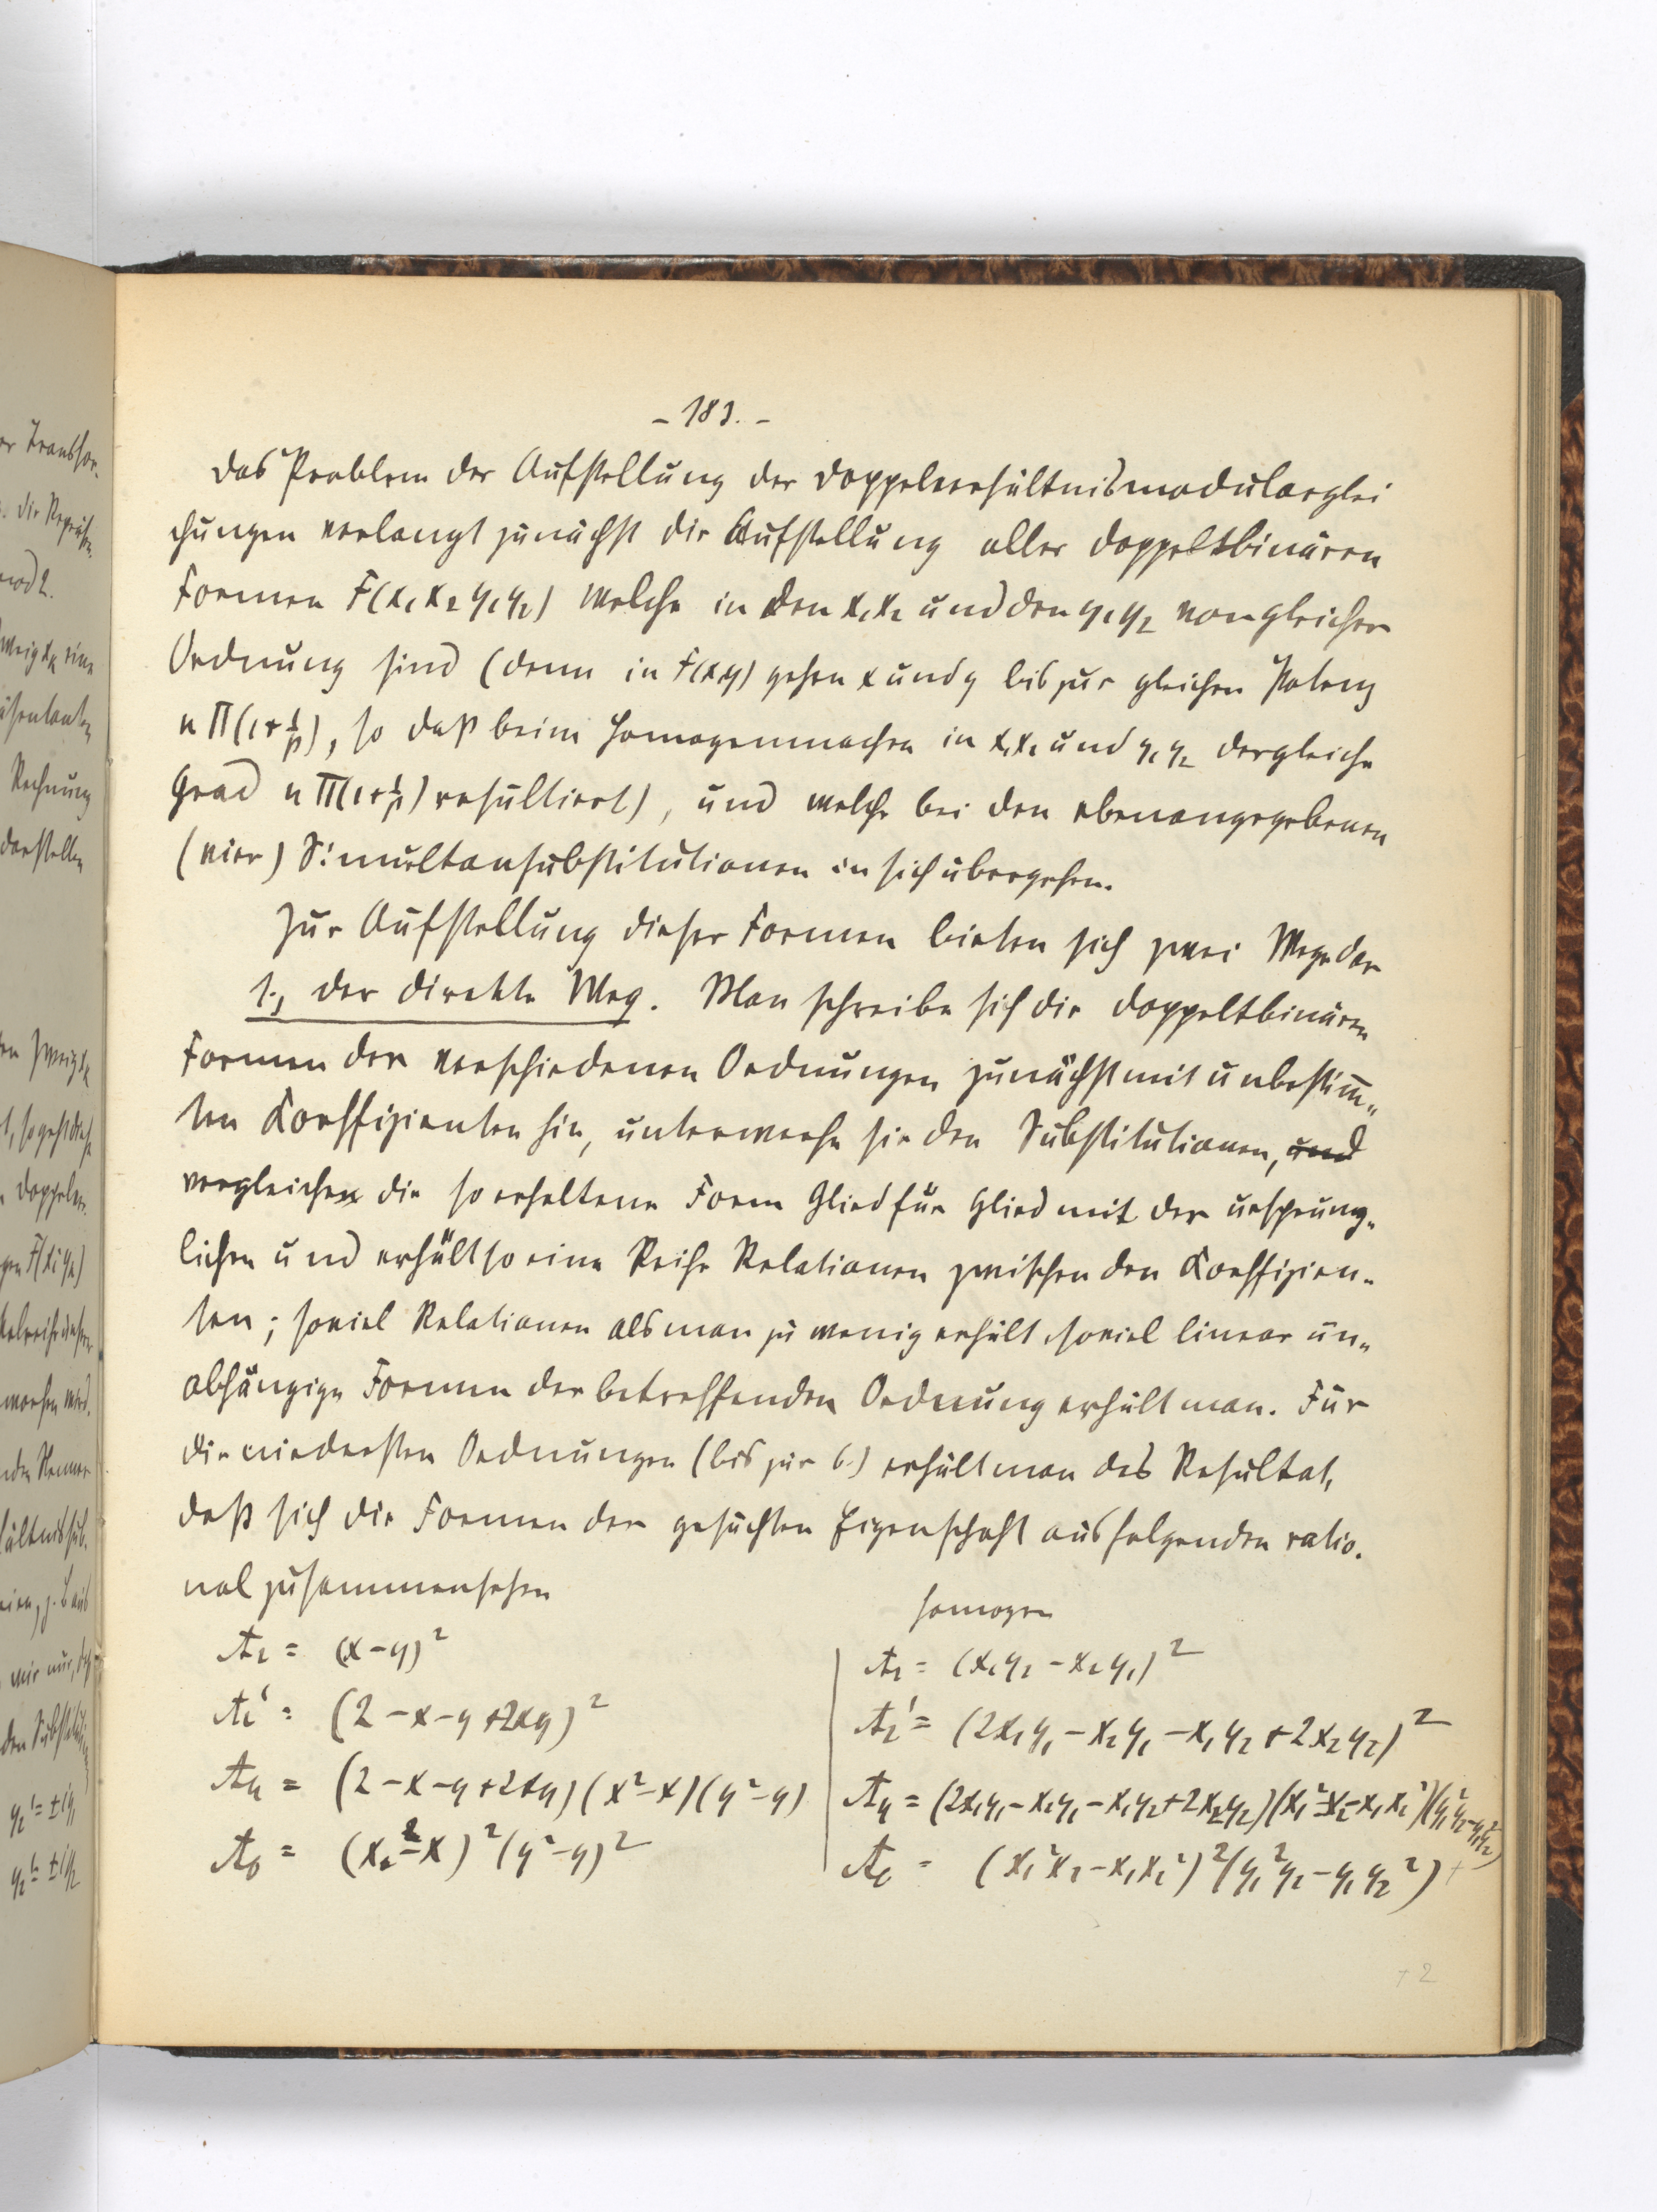 - 183. -
Das Problem der Aufstellung der Doppelverhältnismodularglei
chungen verlangt zunächst die Aufstellung aller doppeltbinären
Formen F(x₁x₂y₁y₂) welche in den x₁x₂ und den y₁y₂ von gleicher
Ordnung sind (denn in F(xy) gehen x und y bis zur gleichen Potenz
n Π(1+1/p), so daß beim Homogenmachen in x₁x₂ und y₁y₂ der gleiche
Grad n Π(1+1/p) resultiert), und welche bei den ebenangegebenen
(vier) Simultansubstitutionen in sich übergehen.
Zur Aufstellung dieser Formen bieten sich zwei Wege dar
1., der direkte Weg. Man schreibe sich die doppeltbinären
Formen der verschiedenen Ordnungen zunächst mit unbestim̅„
ten Koeffizienten hin, unterwerfe sie den Substitutionen, und
vergleiche die so erhaltene Form Glied für Glied mit der ursprüng„
lichen und erhält so eine Reihe Relationen zwischen den Koeffizien„
ten; soviel Relationen als man zu wenig erhält, soviel linear un„
abhängige Formen der betreffenden Ordnung erhält man. Für
die niedersten Ordnungen (bis zur 6.) erhält man das Resultat,
daß sich die Formen der gesuchten Eigenschaft aus folgenden ratio.
nal zusammensetzen
homogen
A₂ = (x-y)²
A₂ = (x₁y₂ - x₂y₁)²
A₂' = (2-x-y+2xy)²
A₂' = (2x₁y₁ - x₂y₁ - x₁y₂ + 2x₂y₂)²
A₄ = (2-x-y+2xy)(x²-x)(y²-y)
A₄ = (2x₁y₁ - x₂y₁ - x₁y₂ + 2x₂y₂)(x₁²x₂ - x₁x₂²)(y₁²y₂ - y₁y₂²)
A₆ = (x²-x)²(y²-y)²
A₆ = (x₁²x₂ - x₁x₂²)²(y₁²y₂ - y₁y₂²) +
+ 2